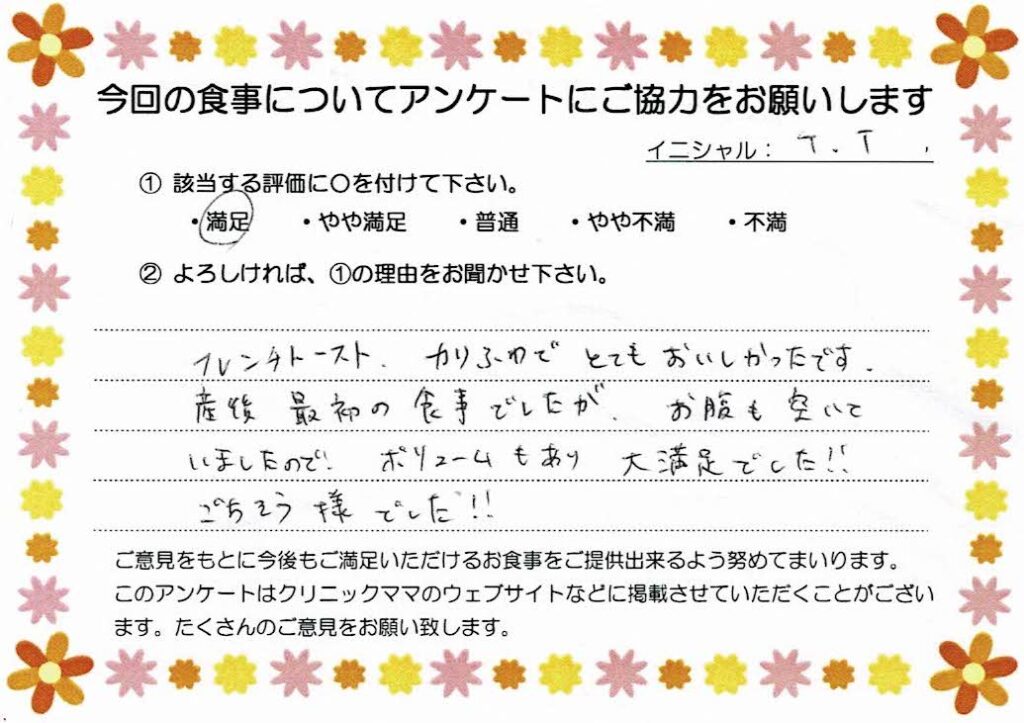 今回の食事についてアンケートにご協力をお願いします
イニシャル： T. T
① 該当する評価に○を付けて下さい。
・満足 ・やや満足 ・普通 ・やや不満 ・不満
② よろしければ、①の理由をお聞かせ下さい。
フレンチトースト、カリふわでとてもおいしかったです。
産後最初の食事でしたが、お腹も空いて
いましたので、ボリュームもあり大満足でした!!
ごちそう様でした!!
ご意見をもとに今後もご満足いただけるお食事をご提供出来るよう努めてまいります。
このアンケートはクリニックママのウェブサイトなどに掲載させていただくことがござい
ます。たくさんのご意見をお願い致します。